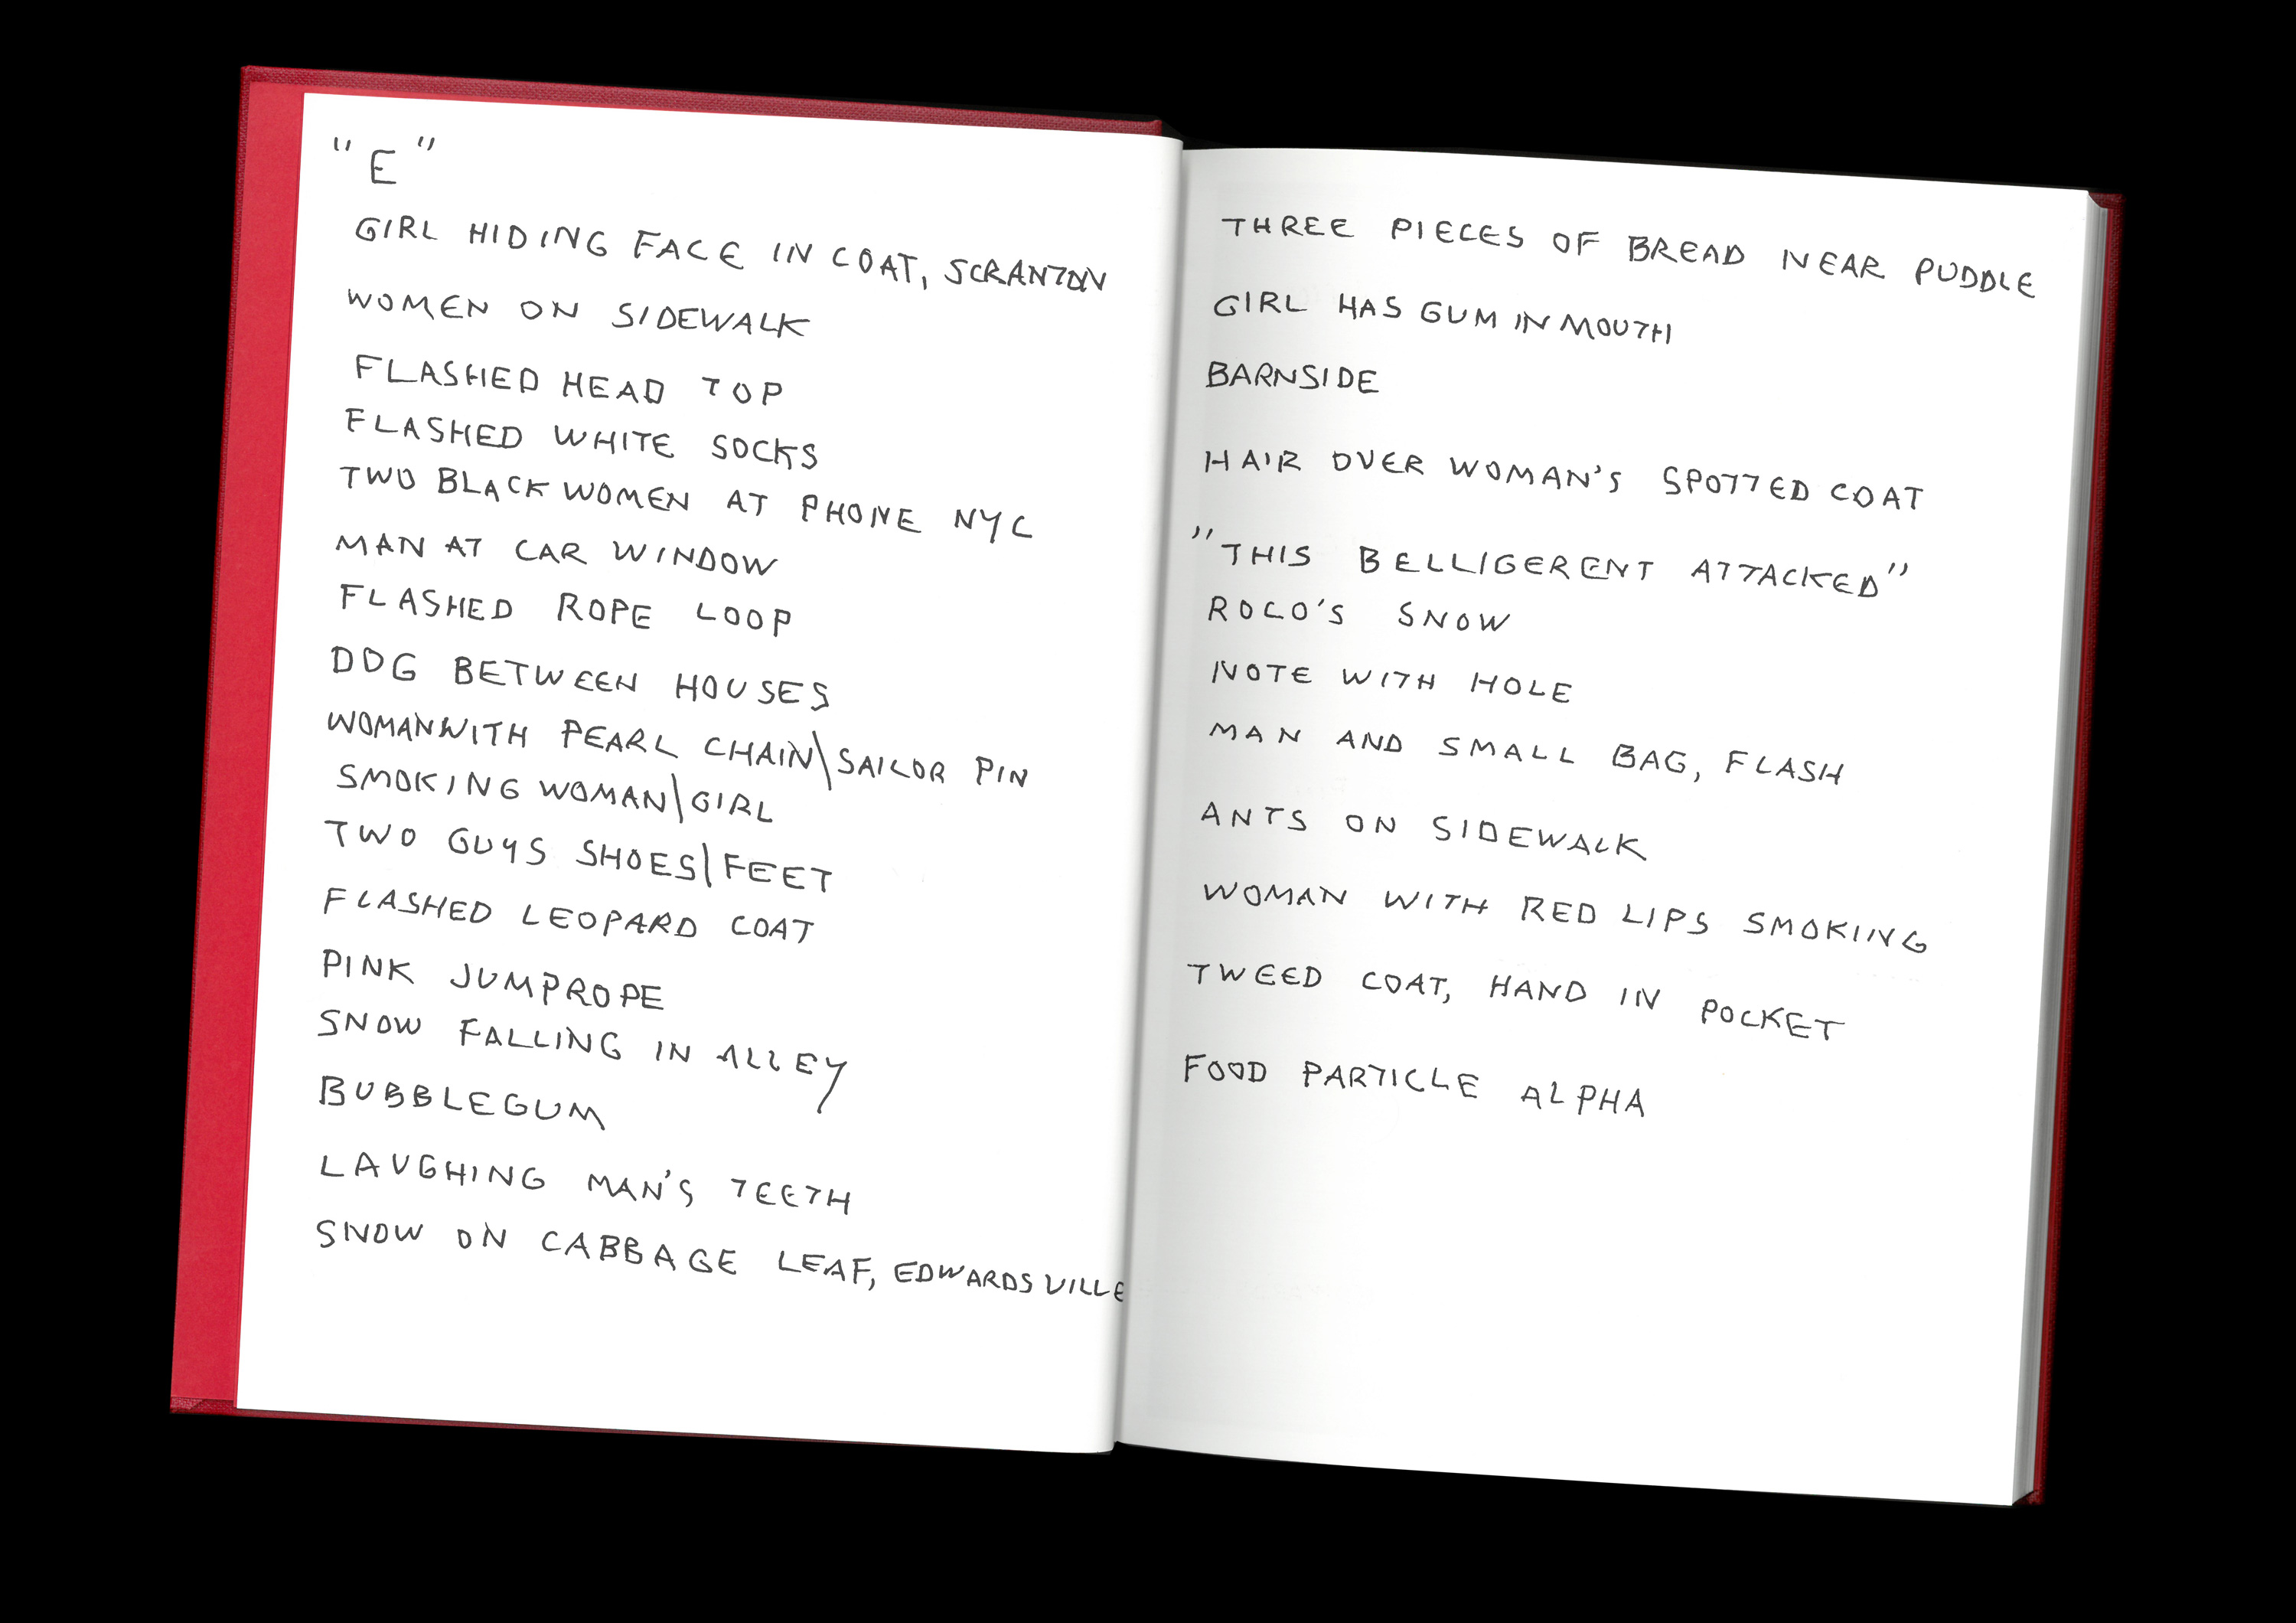 "E"
GIRL HIDING FACE IN COAT, SCRANTON
WOMEN ON SIDEWALK
FLASHED HEAD TOP
FLASHED WHITE SOCKS
TWO BLACK WOMEN AT PHONE NYC
MAN AT CAR WINDOW
FLASHED ROPE LOOP
DOG BETWEEN HOUSES
WOMAN WITH PEARL CHAIN\SAILOR PIN
SMOKING WOMAN\GIRL
TWO GUYS SHOES\FEET
FLASHED LEOPARD COAT
PINK JUMPROPE
SNOW FALLING IN ALLEY
BUBBLEGUM
LAUGHING MAN'S TEETH
SNOW ON CABBAGE LEAF, EDWARDSVILLE
THREE PIECES OF BREAD NEAR PUDDLE
GIRL HAS GUM IN MOUTH
BARNSIDE
HAIR OVER WOMAN'S SPOTTED COAT
"THIS BELLIGERENT ATTACKED"
ROCO'S SNOW
NOTE WITH HOLE
MAN AND SMALL BAG, FLASH
ANTS ON SIDEWALK
WOMAN WITH RED LIPS SMOKIING
TWEED COAT, HAND IN POCKET
FOOD PARTICLE ALPHA